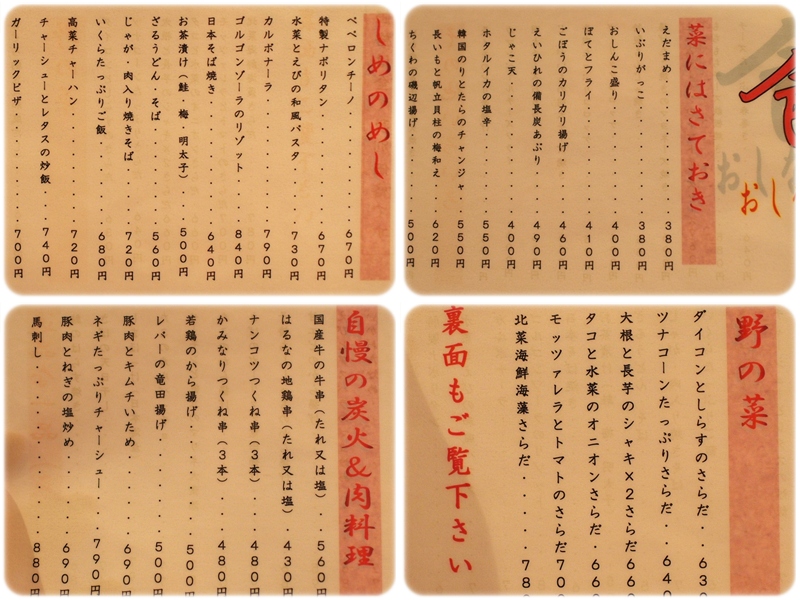 しめのめし
ペペロンチーノ・・・・・・・670円
特製ナポリタン・・・・・・・670円
水菜とえびの和風パスタ・・・730円
カルボナーラ・・・・・・・・790円
ゴルゴンゾーラのリゾット・・840円
日本そば焼き・・・・・・・・640円
お茶漬け(鮭・梅・明太子)・・500円
ざるうどん・そば・・・・・・560円
じゃが・肉入り焼きそば・・・720円
いくらたっぷりご飯・・・・・680円
高菜チャーハン・・・・・・・720円
チャーシューとレタスの炒飯・・740円
ガーリックピザ・・・・・・・700円
菜にはさておき
えだまめ・・・・・・・・・・380円
いぶりがっこ・・・・・・・・380円
おしんこ盛り・・・・・・・・400円
ぽてとフライ・・・・・・・・410円
ごぼうのカリカリ揚げ・・・・460円
えいひれの備長炭あぶり・・・490円
じゃこ天・・・・・・・・・・400円
ホタルイカの塩辛・・・・・・550円
韓国のりとたらのチャンジャ・・550円
長いもと帆立貝柱の梅和え・・620円
ちくわの磯辺揚げ・・・・・・500円
自慢の炭火&肉料理
国産牛の牛串(たれ又は塩)・・560円
はるなの地鶏串(たれ又は塩)・・430円
ナンコツつくね串(3本)・・・480円
かみなりつくね串(3本)・・・480円
若鶏のから揚げ・・・・・・・500円
レバーの竜田揚げ・・・・・・500円
豚肉とキムチいため・・・・・690円
ネギたっぷりチャーシュー・・790円
豚肉とねぎの塩炒め・・・・・690円
馬刺し・・・・・・・・・・・880円
野の菜
ダイコンとしらすのさらだ・・630
ツナコーンたっぷりさらだ・・640
大根と長芋のシャキ×2さらだ660
タコと水菜のオニオンさらだ・660
モッツァレラとトマトのさらだ70
北菜海鮮海藻さらだ・・・・・78
裏面もご覧下さい